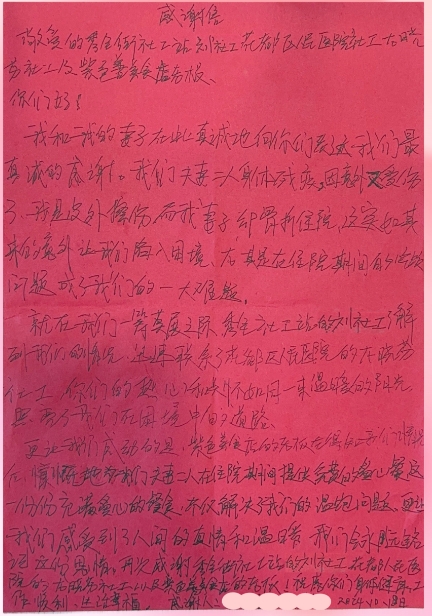 感谢信
敬爱的秀全街社工站刘社工花都区人民医院社工右晓
芳社工及紫色善美会店老板.
你们好!
我和我的妻子在此真诚地向你们表达我们最
真诚的感谢!。我们夫妻二人身体残疾,因意外又受伤
了.我是皮外擦伤而我妻子却骨折住院,这突如其
来的意外让我们陷入困境、尤其是在住院期间的吃饭
问题成了我们的一大难题.
就在我们一筹莫展之际秀全社工站的刘社工了解
到我们的情况.还联系了花都区人民医院的
社工.你们的热心和关怀如同一束温暖的阳光
照亮了我们在困境中的道路.
更让我们感动的是,紫色善美店的老板在得知我们情况
后,慷慨地为我们夫妻二人在住院期间提供免费的爱心餐
一份份充满爱心的餐食.不仅解决了我们的温饱问题,更让
我们感受到了人间的真情和温暖.我们会永远铭
记这份恩情.再次感谢秀全社工站的刘社工花都区人民医
院的 社工以及紫色善美店的老板!祝愿你们身体健康.工
作顺利. 幸福. 感谢人: 2024.